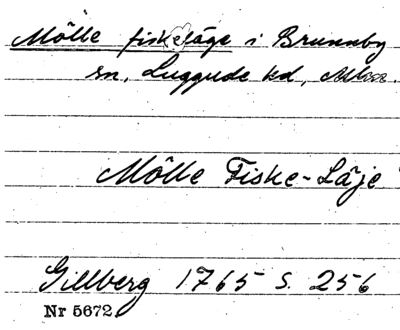 Mölle fiskeläge i Brunnby
sn, Luggude hd, Mlm.
Mölle Fiske-Läje
Gillberg 1765 s. 256
Nr 5672